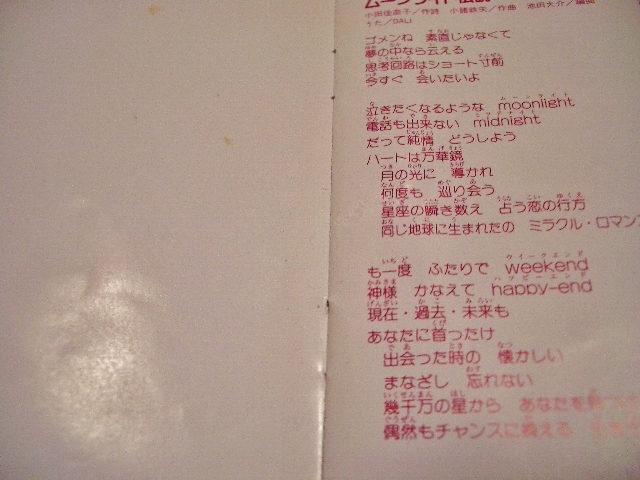 ムーンライト伝説
小田佳奈子／作詩 小諸鉄矢／作曲 池田大介／編曲
うた／DALI
ゴメンね 素直じゃなくて
夢の中なら云える
思考回路はショート寸前
今すぐ 会いたいよ
泣きたくなるような moonlight
電話も出来ない midnight
だって純情 どうしよう
ハートは万華鏡
月の光に 導かれ
何度も 巡り会う
星座の瞬き数え 占う恋の行方
同じ地球に生まれたの ミラクル・ロマン
も一度 ふたりで weekend
神様 かなえて happy-end
現在・過去・未来も
あなたに首ったけ
出会った時の 懐かしい
まなざし 忘れない
幾千万の星から あなたを
偶然もチャンスに換える